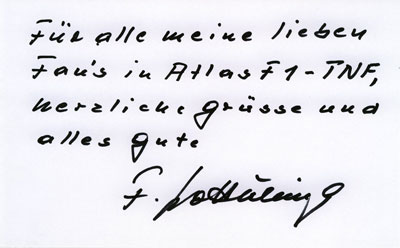 Für alle meine lieben
Fan's in Atlas F1-TNF,
herzliche grüsse und
alles gute
F.